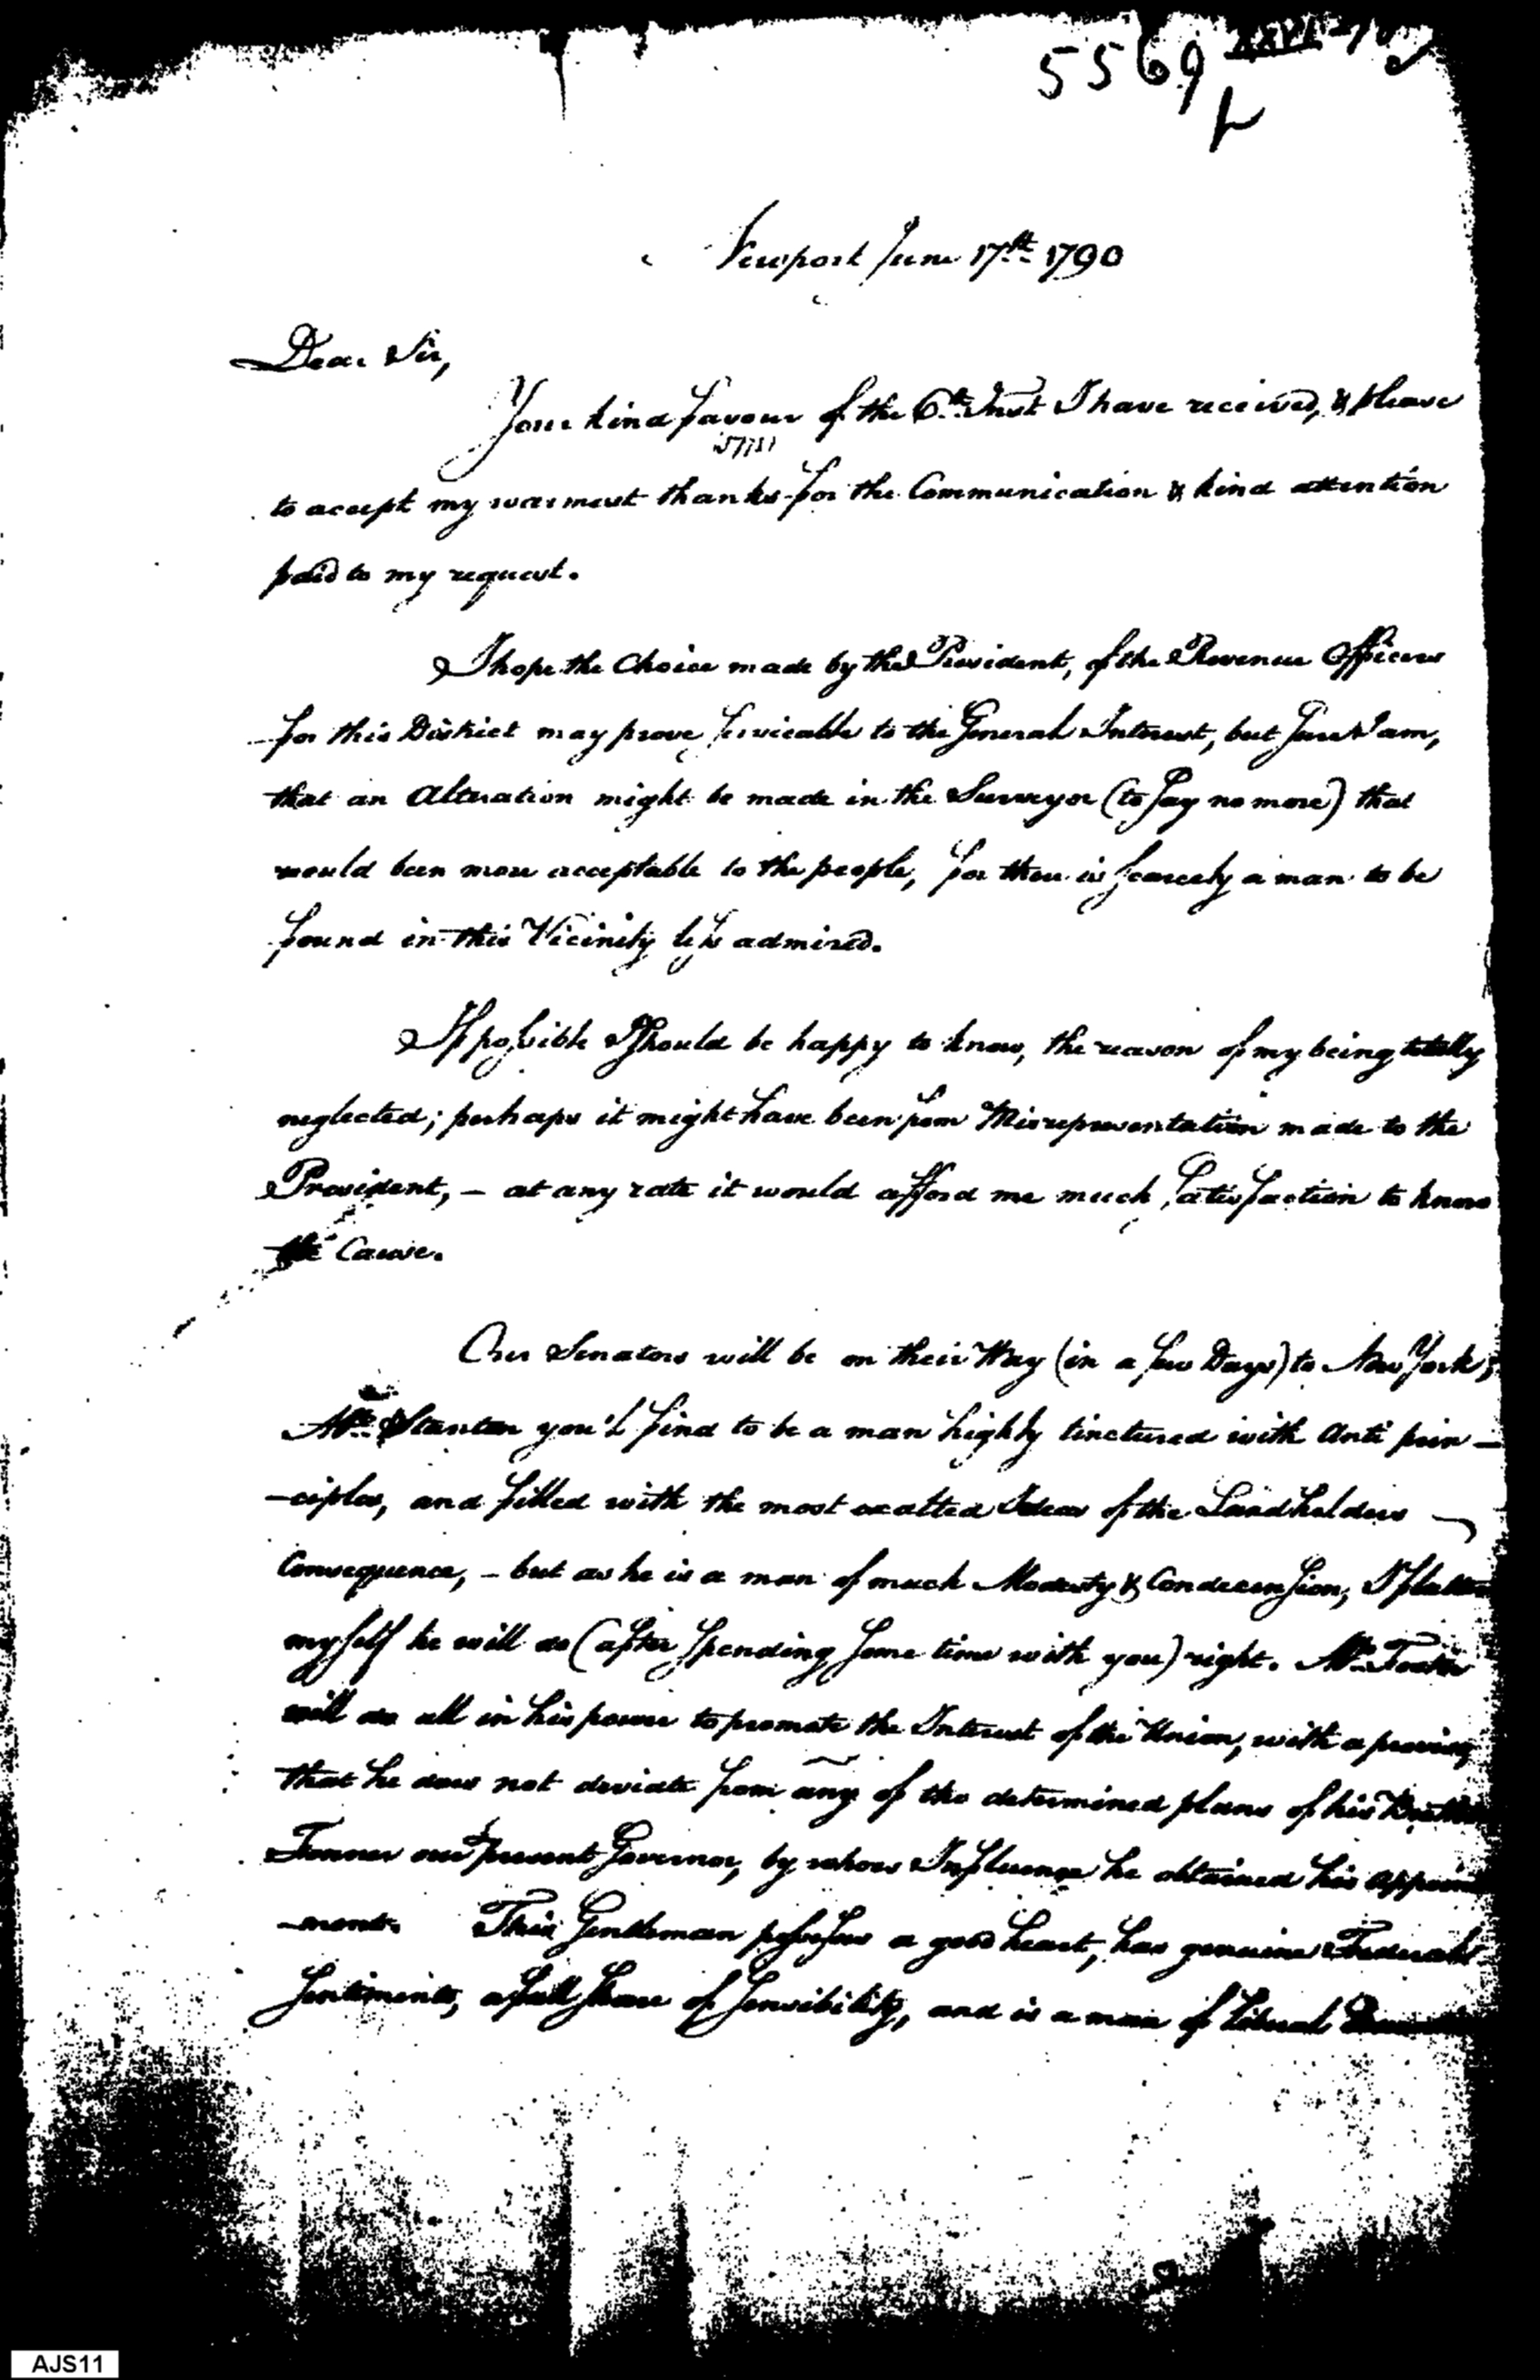 5569
Newport June 17th 1790
Dear Sir,
Your kind favour of the 6th Inst I have received, & please
to accept my warmest thanks for the Communication & kind attention
paid to my request.
I hope the Choice made by the President, of the Revenue Officers
for this District may prove serviceable to the General Interest, but sure I am,
that an Alteration might be made in the Surveyor (to say no more) that
would been more acceptable to the people, for there is scarcely a man to be
found in this Vicinity less admired.
If possible I should be happy to know, the reason of my being totally
neglected; perhaps it might have been from Misrepresentation made to the
President, – at any rate it would afford me much satisfaction to know
the Cause.
Our Senators will be on their Way (in a few Days) to New York;
Mr. Stanton you'l find to be a man highly tinctured with Anti prin-
-ciples, and filled with the most exalted Ideas of the Landholders
Consequence, – but as he is a man of much Modesty & Condecension, I flatter
myself he will do (after spending some time with you) right. Mr. Foster
will do all in his power to promote the Interest of the Union, with a proviso
that he does not deviate from any of the determined plans of his Brother
Fenner our present Governor, by whose Influence he obtained his appoint
-ment. This Gentleman possesses a good heart, has genuine Federal
Sentiments, a full share of sensibility, and is a man of liberal
AJS11